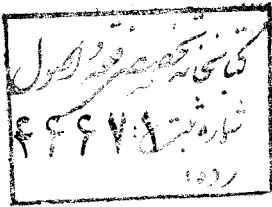 کتابخانه تخصصی فقه و اصول
شماره ثبت: ۴۴۶۷۱
رده: